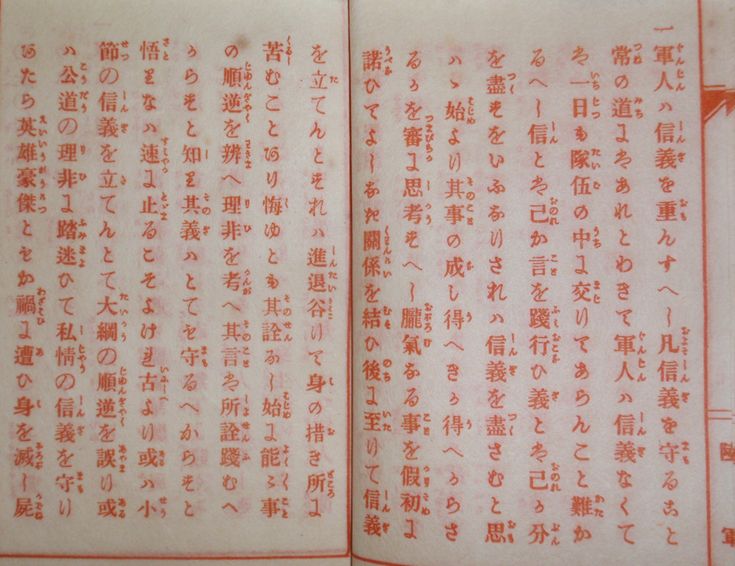 一軍人ハ信義を重んすへし凡信義を守ること
常の道にはあれとわきて軍人ハ信義なくて
は一日も隊伍の中に交りてあらんこと難か
るへし信とは己か言を踐行ひ義とは己か分
を盡すをいふなりされハ信義を盡さむと思
ハゝ始より其事の成し得へきか得へからさ
るかを審に思考すへし朧氣なる事を假初に
諾ひてよしなき關係を結ひ後に至りて信義
を立てんとすれハ進退谷りて身の措き所に
苦むことあり悔ゆとも其詮なし始に能々事
の順逆を辨へ理非を考へ其言は所詮踐むへ
からすと知り其義ハとても守るへからすと
悟りなハ速に止るこそよけれ古より或ハ小
節の信義を立てんとて大綱の順逆を誤り或
ハ公道の理非に踏迷ひて私情の信義を守り
あたら英雄豪傑ともか禍に遭ひ身を滅し屍